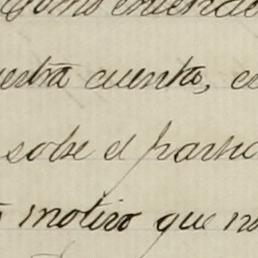 como entende
uestra cuenta, e
sobre el partic
motivo que no